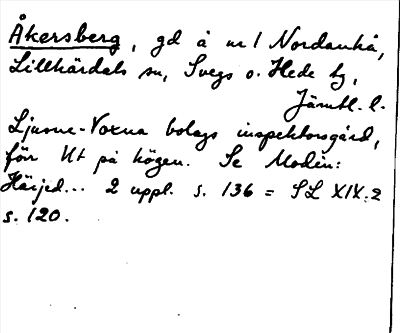 Åkersberg, gd å nr 1 Nordanhå,
Lillhärdals sn, Svegs o. Hede tg,
Jämtl. l.
Ljusne-Voxna bolags inspektorsgård,
för Ut på högen. Se Modin:
Härjed... 2 uppl. s. 136 = SL XIX:2
s. 120.